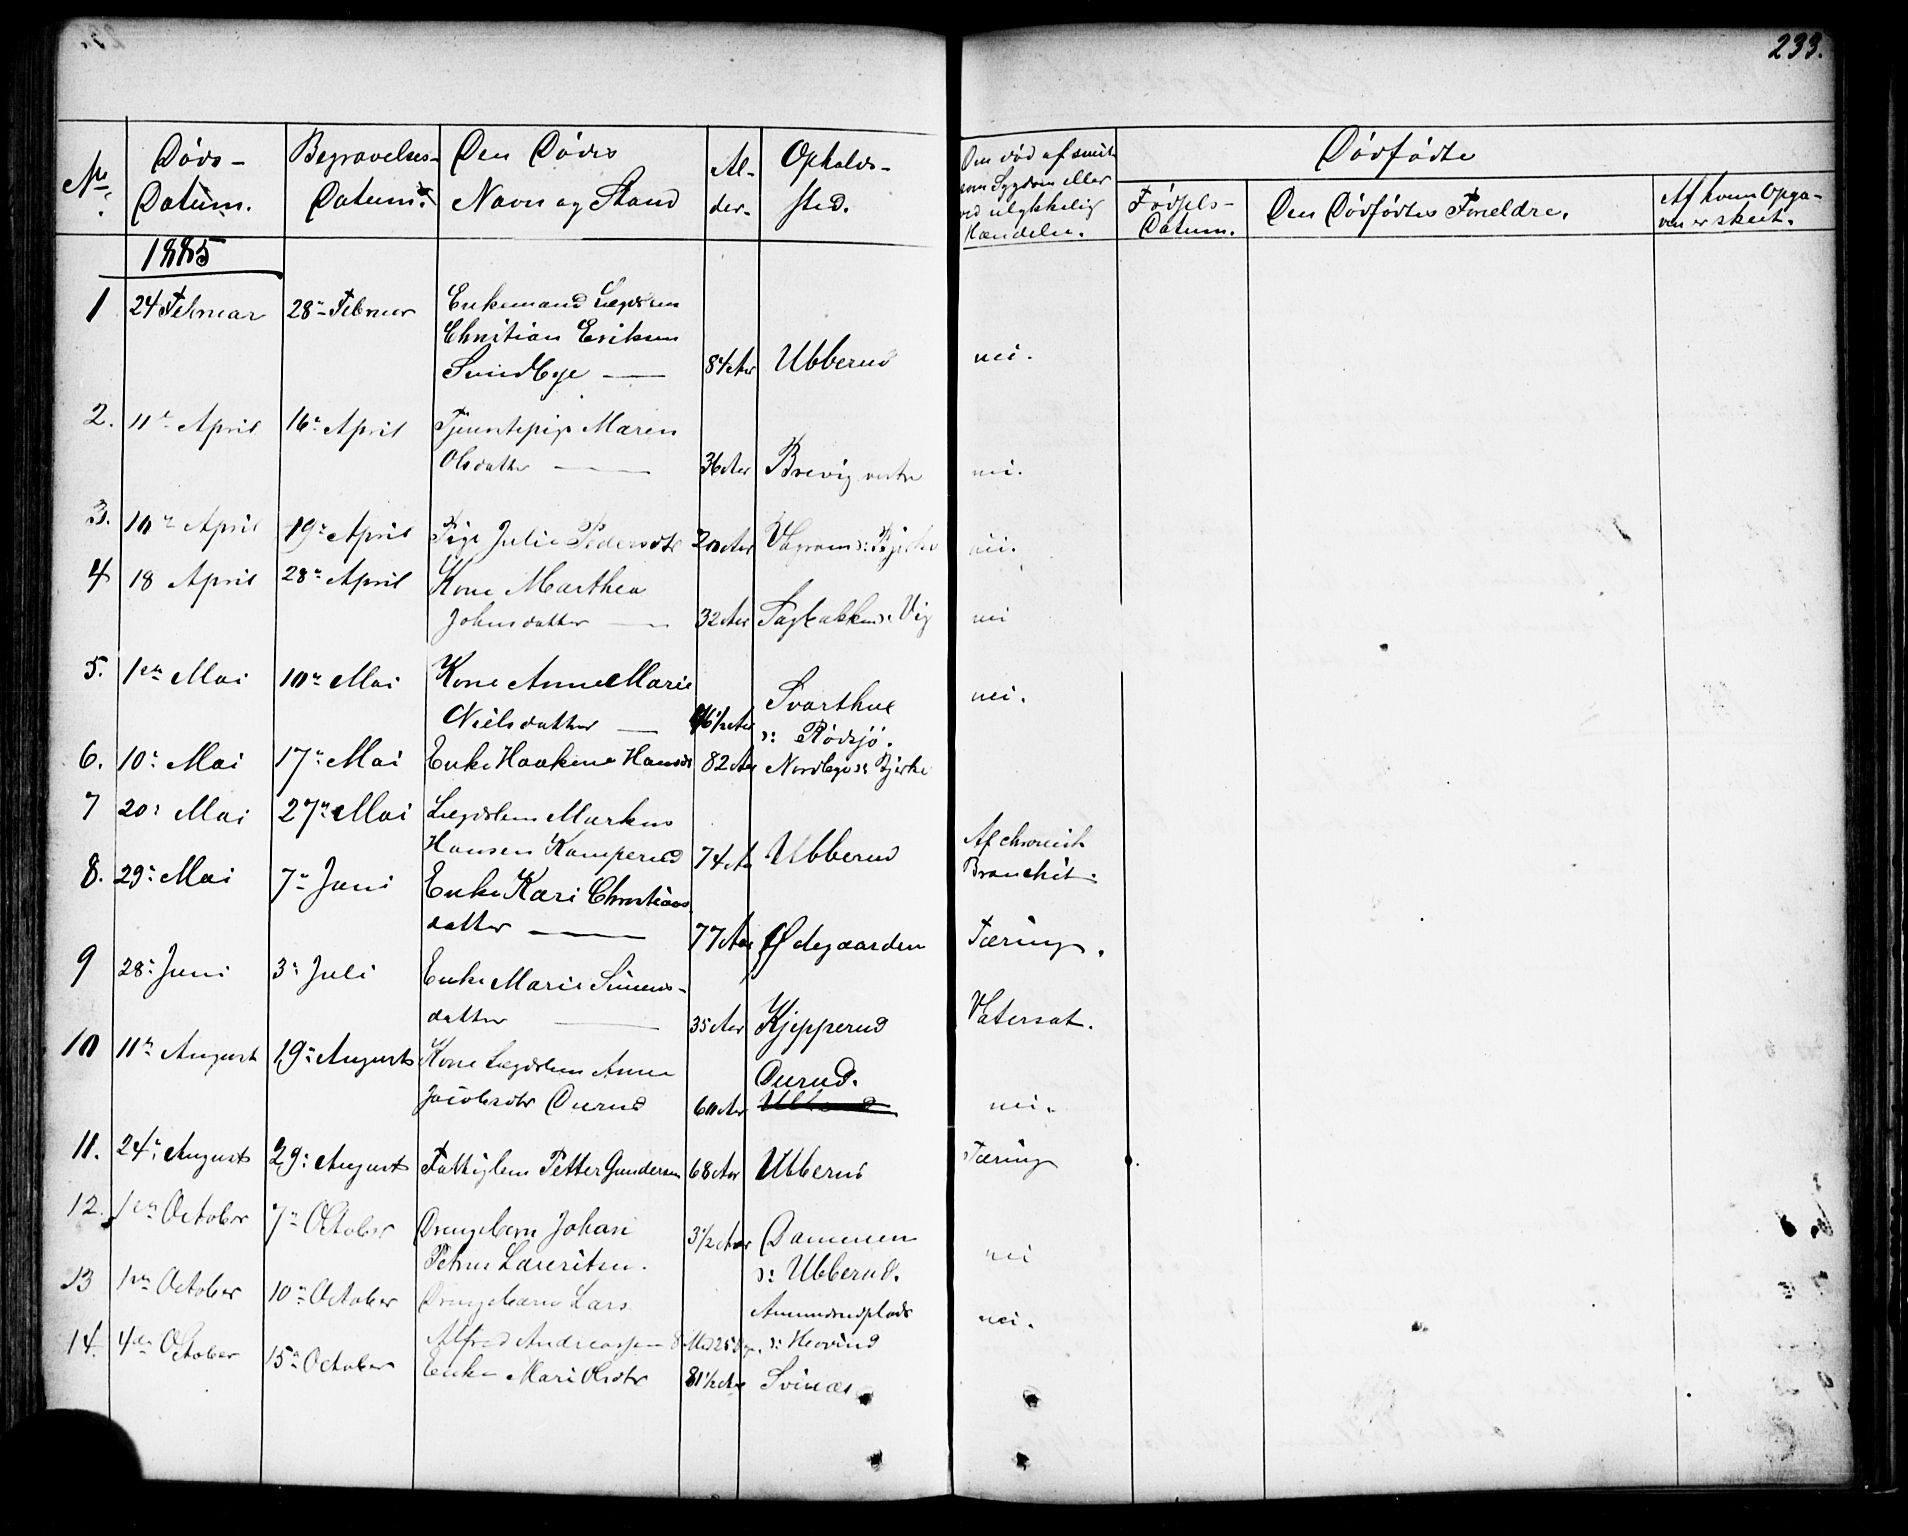 233.
No. Døds- Datum. Begravelses- Datum. Den Dødes Navn og Stand Al- der. Opholds- sted. Den død af smit- som Sygdom eller ved ulykkelig Hændelse. Dødfødte
Fødsels- Datum. Den Dødfødtes Forældre. Af hvem Opga- ven er skeet.
1885
1 24 Februar 28de Februar Enkemand Lægdslem
Christian Eriksen
Sundbye 84 Aar Ubberud nei.
2. 11te April 16de April Tjenestepige Maren
Olsdatter 36 Aar Brevig vestre nei.
3. 10de April 19de April Pige Julie Pedersdtr 20 Aar Vagram s: Bjerke nei.
4 18 April 28de April Kone Marthea
Johnsdatter 32 Aar Sagbakken s: Vig nei
5. 1ste Mai 10de Mai Kone Anne Marie
Nielsdatter 46 1/2 Aar Svarthue nei.
s: Rødsjø.
6. 10: Mai 17de Mai Enke Haakine Hansdr 82 Aar Nordbye s: Bjerke
7 20: Mai 27de Mai Lægdslem Markus
Hansen Kamperud 74 Aar Ubberud Af chronisk
Bronchit.
8. 29: Mai 7de Juni Enke Kari Christians
datter 77 Aar Ødegaarden Tæring.
9 28: Juni 3: Juli Enke Marie Simens-
datter 35 Aar Kjepperud Vatersot.
10 11te August 19: August Kone Lægdslem Anne
Jacobsdtr Durud 60 Aar Durud. nei.
11. 24: August 29: August Fattiglem Petter Gundersen 68 Aar Ubberud Tæring
12. 1ste October 7de October Drengebarn Johan
Petrus Lauritsen. 3 1/2 Aar Dammen
s: Ubberud. nei
13 1ste October 10de October Drengebarn Lars
Alfred Andreassen 8 Md 25 Dge. Amundrudplads
s: Hovind nei.
14. 4de October 15de October Enke Mari Olsdtr 81 1/2 Aar Svinæs